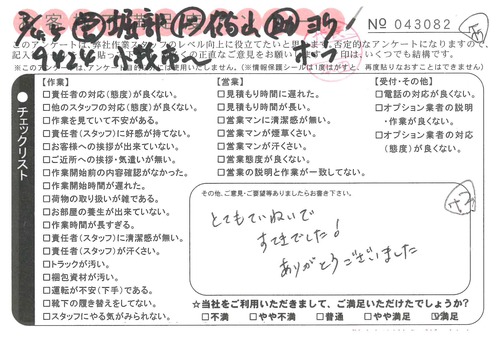 No 043082
このアンケートは、弊社作業スタッフのレベル向上に役立てたいと
※このアンケートは、
(※情報保護シールは1度はがすと、再度貼りなおすことはできません)
チェックリスト
【作業】
□責任者の対応(態度)が良くない。
□他のスタッフの対応(態度)が良くない。
□作業を見ていて不安がある。
□責任者(スタッフ)に好感が持てない。
□お客様への挨拶が出来ていない。
□ご近所への挨拶・気遣いが無い。
□作業開始前の内容確認がなかった。
□作業開始時間が遅れた。
□荷物の取り扱いが雑である。
□お部屋の養生が出来ていない。
□作業時間が長すぎる。
□責任者(スタッフ)に清潔感が無い。
□責任者(スタッフ)が汗くさい。
□トラックが汚い。
□梱包資材が汚い。
□運転が不安(下手)である。
□靴下の履き替えをしてない。
□スタッフにやる気がみられない。
【営業】
□見積もり時間に遅れた。
□見積もり時間が長い。
□営業マンに清潔感が無い。
□営業マンが煙草くさい。
□営業マンが汗くさい。
□営業態度が良くない。
□営業の説明と作業が一致してない。
【受付・その他】
□電話の対応が良くない。
□オプション業者の説明
・作業が良くない。
□オプション業者の対応
(態度)が良くない。
その他、ご意見・ご要望等ありましたらお書き下さい。
とてもていねいで
すてきでした!
ありがとうございました
☆当社をご利用いただきまして、ご満足いただけたでしょうか?
□不満 □やや不満 □普通 □やや満足 ☑満足